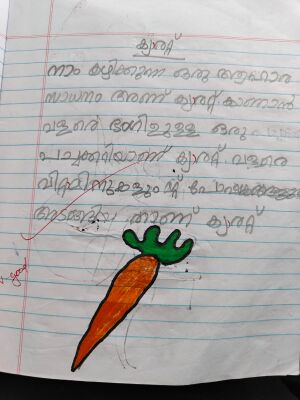 ക്യരറ്റ്
നാം കഴിക്കുന്ന ഒരു ആഹാര
സാധനം ആണ് ക്യരറ്റ്. കാണാൻ
വളരെ ഭംഗിഉള്ള ഒരു
പച്ചക്കറിയാണ് ക്യരറ്റ്. വളരെ
വിറ്റമിനുകളും മറ്റ്
ആണ് ക്യരറ്റ്
good